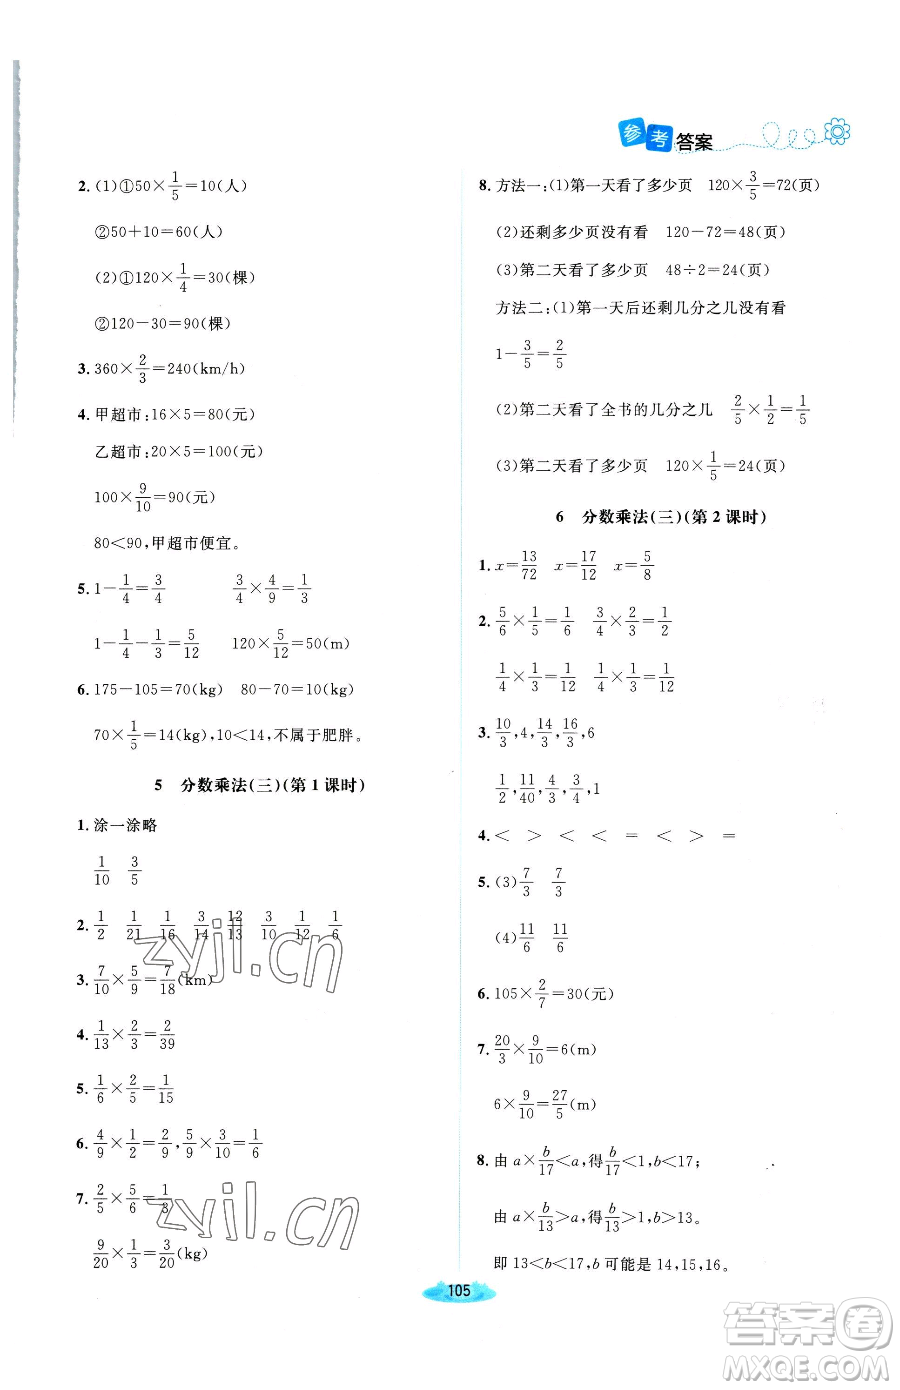 参考答案
2. (1)①50×1/5=10(人)
②50+10=60(人)
(2)①120×1/4=30(棵)
②120-30=90(棵)
3. 360×2/3=240(km/h)
4. 甲超市:16×5=80(元)
乙超市:20×5=100(元)
100×9/10=90(元)
80<90,甲超市便宜。
5. 1-1/4=3/4 3/4×4/9=1/3
1-1/4-1/3=5/12 120×5/12=50(m)
6. 175-105=70(kg) 80-70=10(kg)
70×1/5=14(kg),10<14,不属于肥胖。
5 分数乘法(三)(第1课时)
1. 涂一涂略
1/10 3/5
2. 1/2 1/21 1/16 3/14 12/13 3/10 1/12 1/6
3. 7/10×5/9=7/18(km)
4. 1/13×2/3=2/39
5. 1/6×2/5=1/15
6. 4/9×1/2=2/9,5/9×3/10=1/6
7. 2/5×5/6=1/3
9/20×1/3=3/20(kg)
8. 方法一:(1)第一天看了多少页 120×3/5=72(页)
(2)还剩多少页没有看 120-72=48(页)
(3)第二天看了多少页 48÷2=24(页)
方法二:(1)第一天后还剩几分之几没有看
1-3/5=2/5
(2)第二天看了全书的几分之几 2/5×1/2=1/5
(3)第二天看了多少页 120×1/5=24(页)
6 分数乘法(三)(第2课时)
1. x=13/72 x=17/12 x=5/8
2. 5/6×1/5=1/6 3/4×2/3=1/2
1/4×1/3=1/12 1/4×1/3=1/12
3. 10/3,4,14/3,16/3,6
1/2,11/40,4/3,3/4,1
4. < > < < = < > =
5. (3)7/3 7/3
(4)11/6 11/6
6. 105×2/7=30(元)
7. 20/3×9/10=6(m)
6×9/10=27/5(m)
8. 由a×b/17<a,得b/17<1,b<17;
由a×b/13>a,得b/13>1,b>13.
即13<b<17,b可能是14,15,16。
105
zyjl.cn
zyjl.cn
答案圈
MXQE.COM